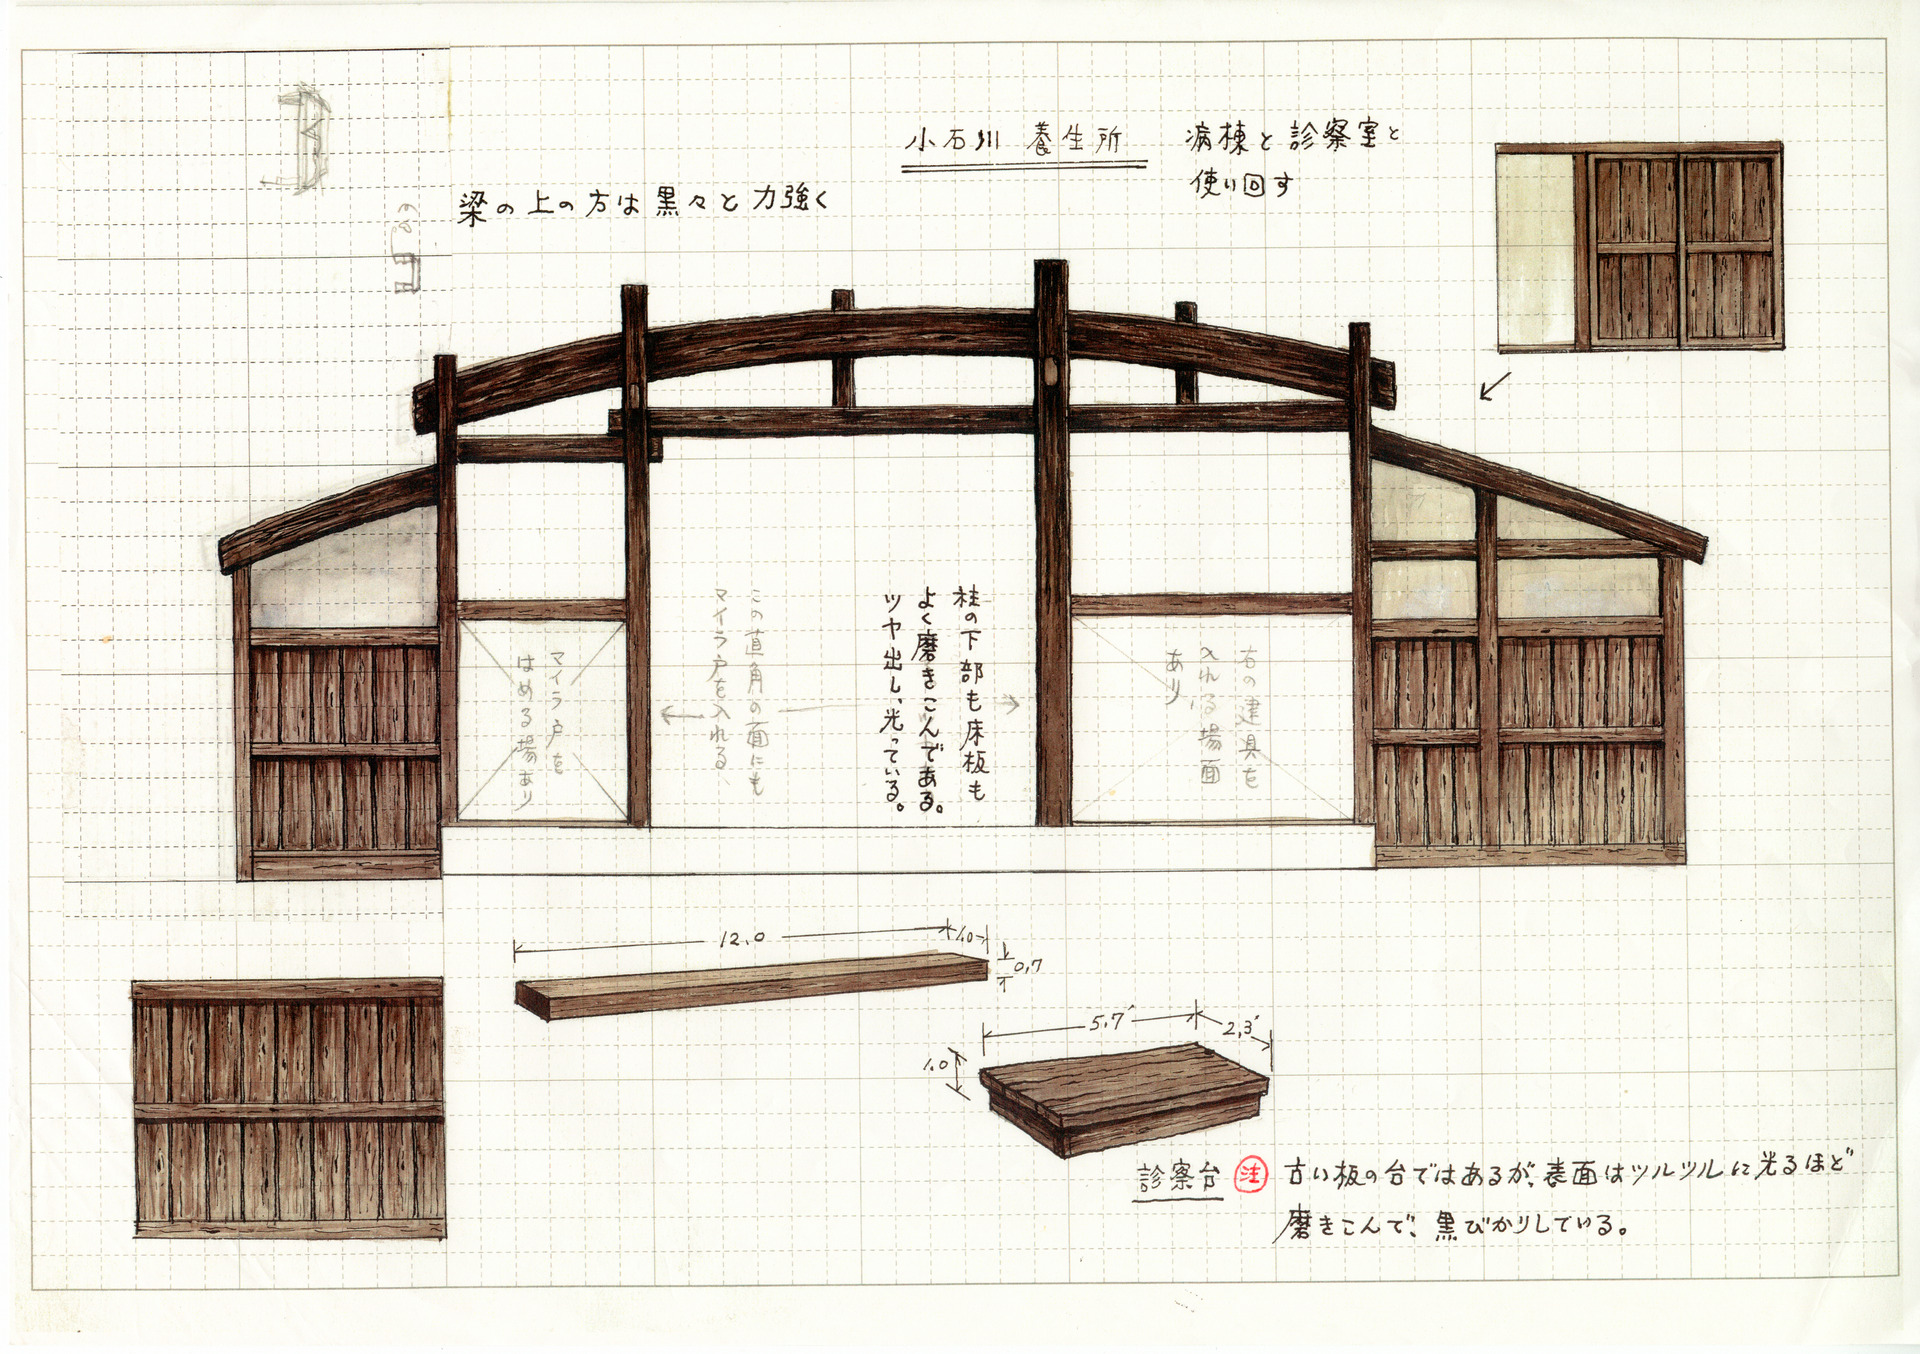 小石川 養生所
病棟と診察室と
使い回す
梁の上の方は黒々と力強く
柱の下部も床板も
よく磨きこんである。
ツヤ出し、光っている。
右の建具を
入れる場面
あり
この直角の面にも
マイラ戸を入れる、
マイラ戸を
はめる場あり
12.0
1.0
0.7
5.7'
2.3'
1.0
診察台 注 古い板の台ではあるが、表面はツルツルに光るほど
磨きこんで、黒びかりしている。